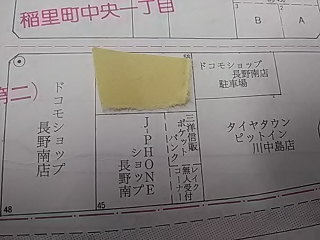 稲里町中央一丁目
第二)
B
A
ドコモショップ
長野南店
駐車場
ドコモショップ
長野南店
J-PHONE
ショップ
長野南
三洋信販
ポケット
バンク
レイク
無人受付
コーナー
タイヤタウン
ピットイン
川中島店
48
45